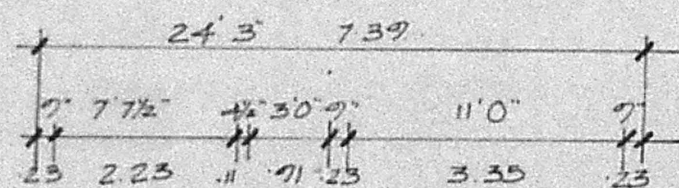 24' 3" 7.39
9" 7'7½" 4½" 3'0" 9" 11'0" 9"
.23 2.23 .11 .91 .23 3.35 .23